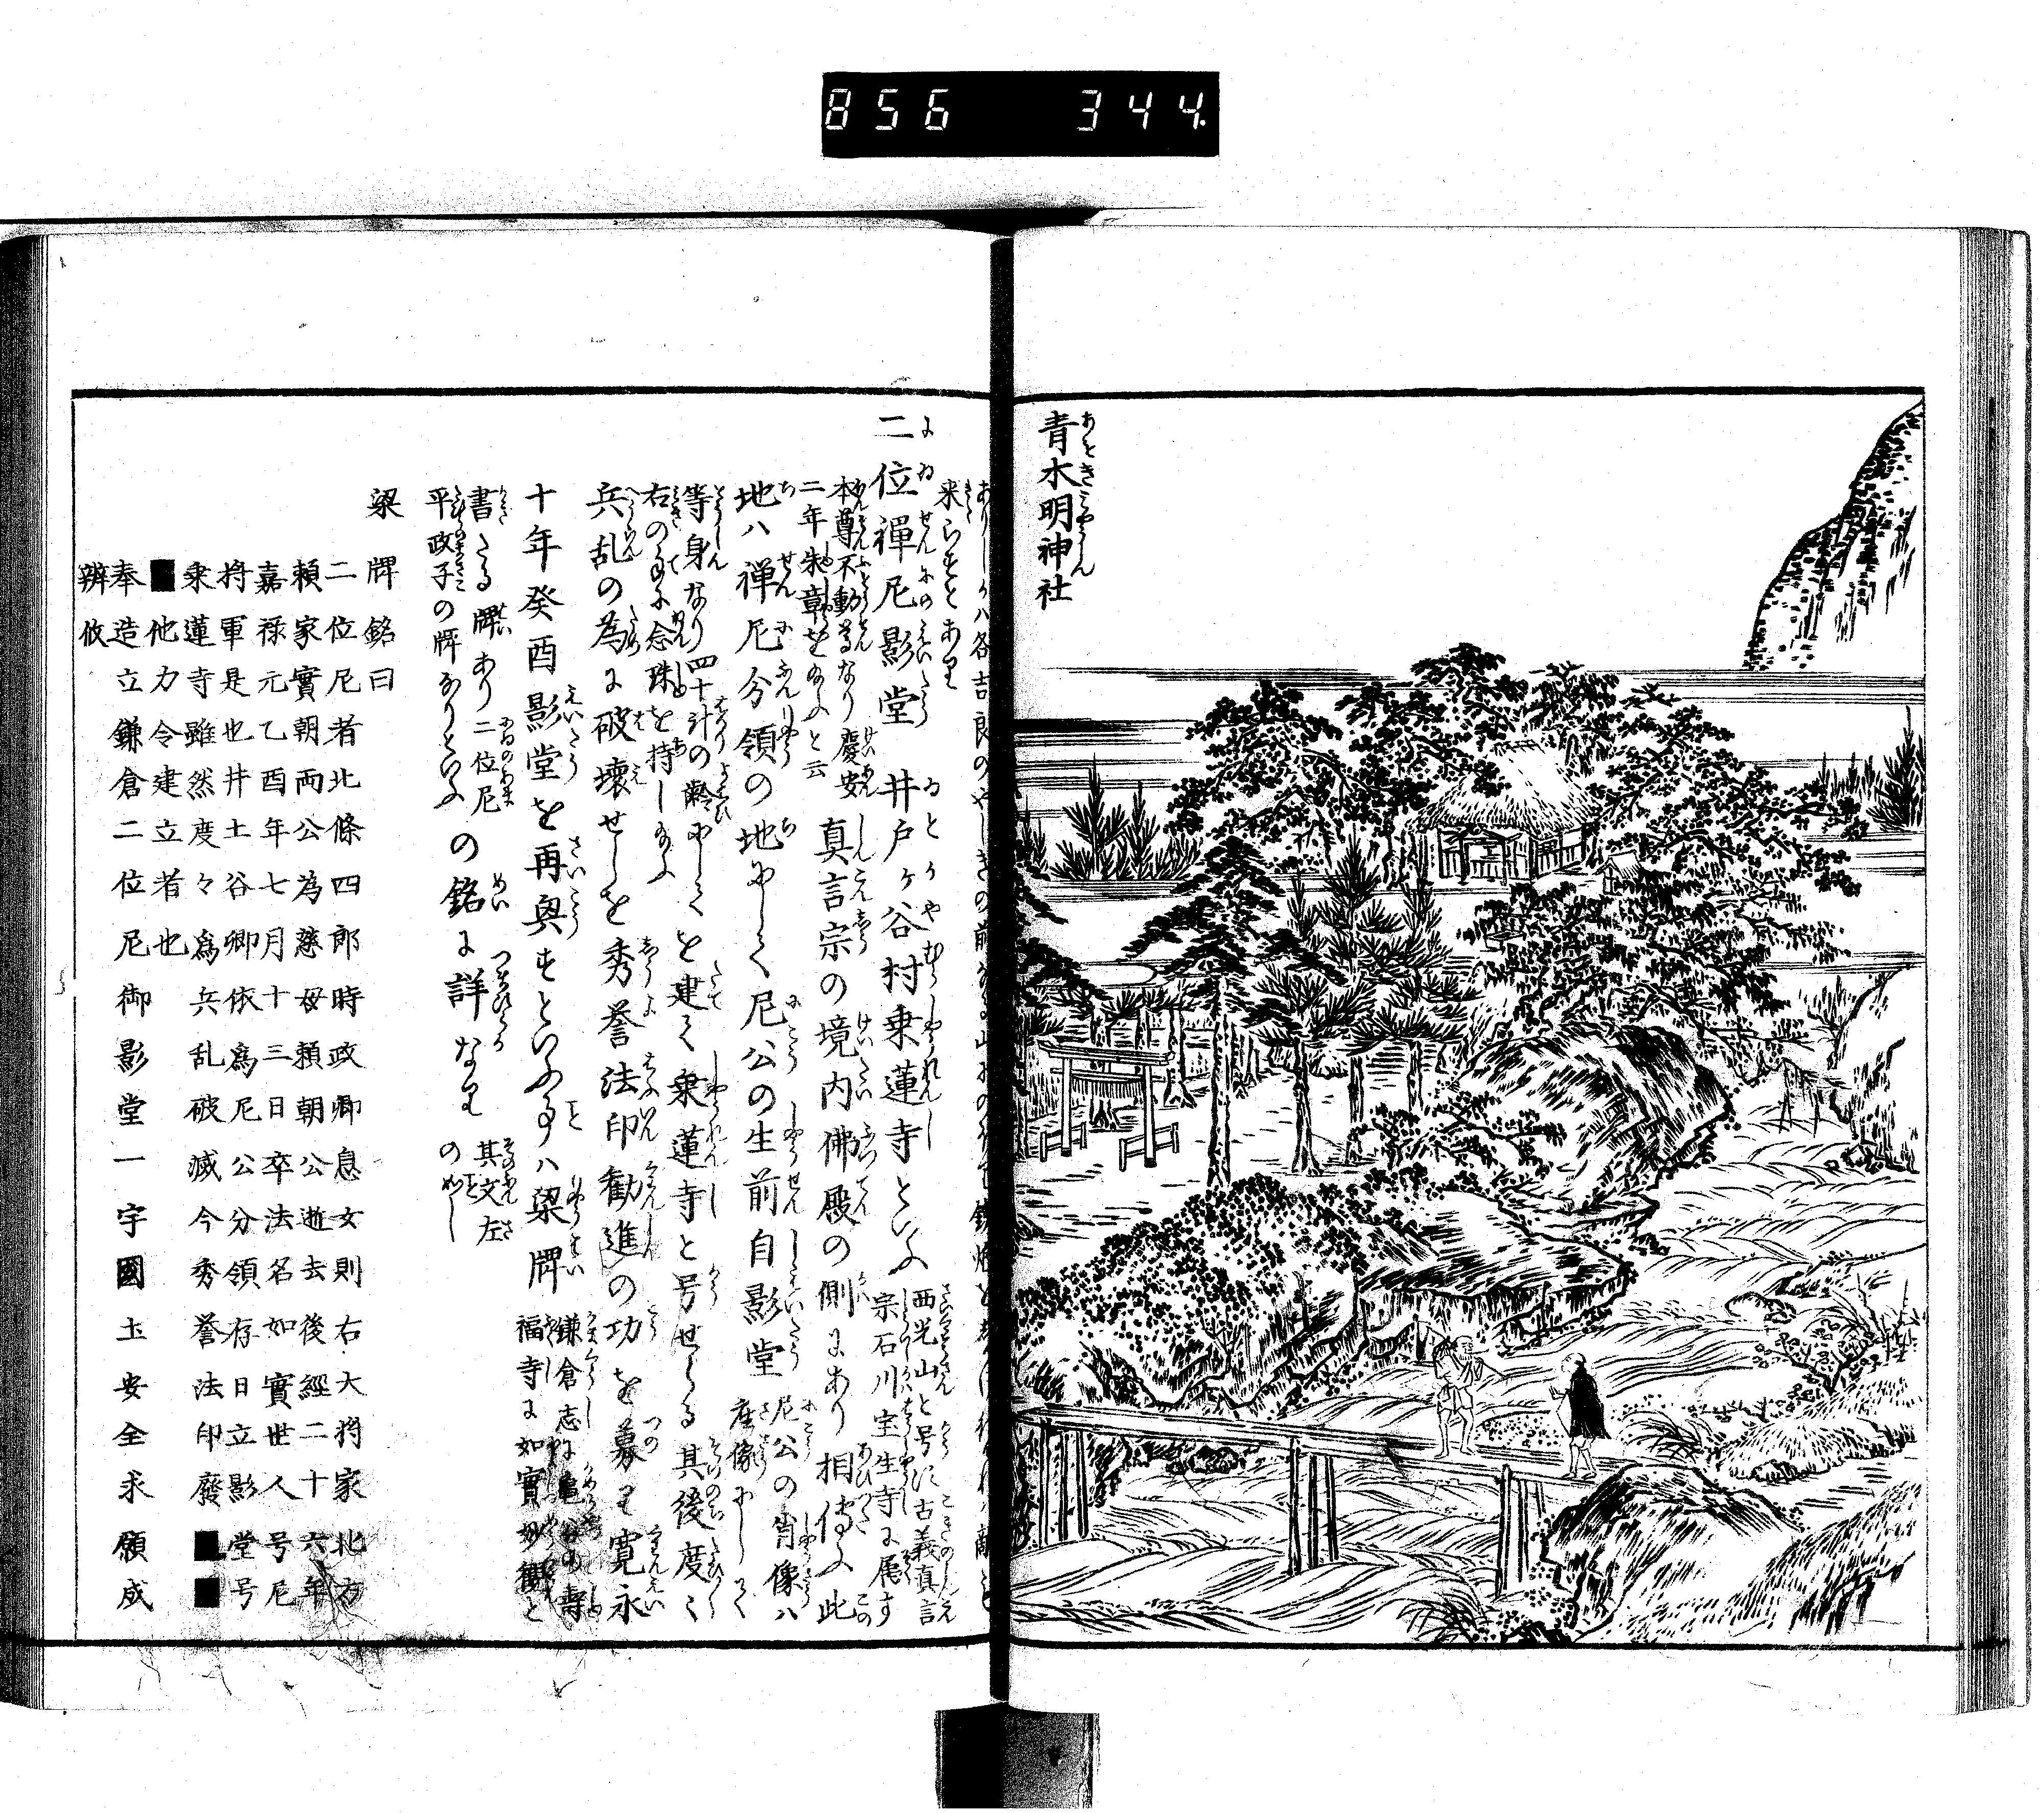 856 344
青木明神社
来らずとあり
二位禪尼影堂 井戸ヶ谷村乗蓮寺といふ 西光山と号す古義真言
宗石川宝生寺に属す
本尊不動尊なり慶安
二年朱章をたまふと云 真言宗の境内佛殿の側にあり相傳ふ此
地ハ禅尼分領の地にして尼公の生前自影堂 尼公の肖像ハ
座像にして
等身なり四十計の齢にして
右の手に念珠を持し給ふ を建て乗蓮寺と号せらる其後度々
兵乱の為に破壊せしを秀誉法印勧進の功を募り寛永
十年癸酉影堂を再興すといふ事ハ梁牌 鎌倉志に亀谷の寿
福寺に如實妙観と
書たる牌あり二位尼
平政子の牌なりといふ の銘に詳なり 其文左
のごとし
梁牌銘曰
二位尼者北條四郎時政卿息女則右大将家北方
頼家實朝両公為慈母頼朝公逝去後經二十六年
嘉禄元乙酉年七月十三日卒法名如實世人号尼
将軍是也井土谷卿依為尼公分領存日立影堂号
乗蓮寺雖然度々為兵乱破滅今秀誉法印發■■
■他力令建立者也
奉造立鎌倉二位尼御影堂一宇國土安全求願成
辨攸